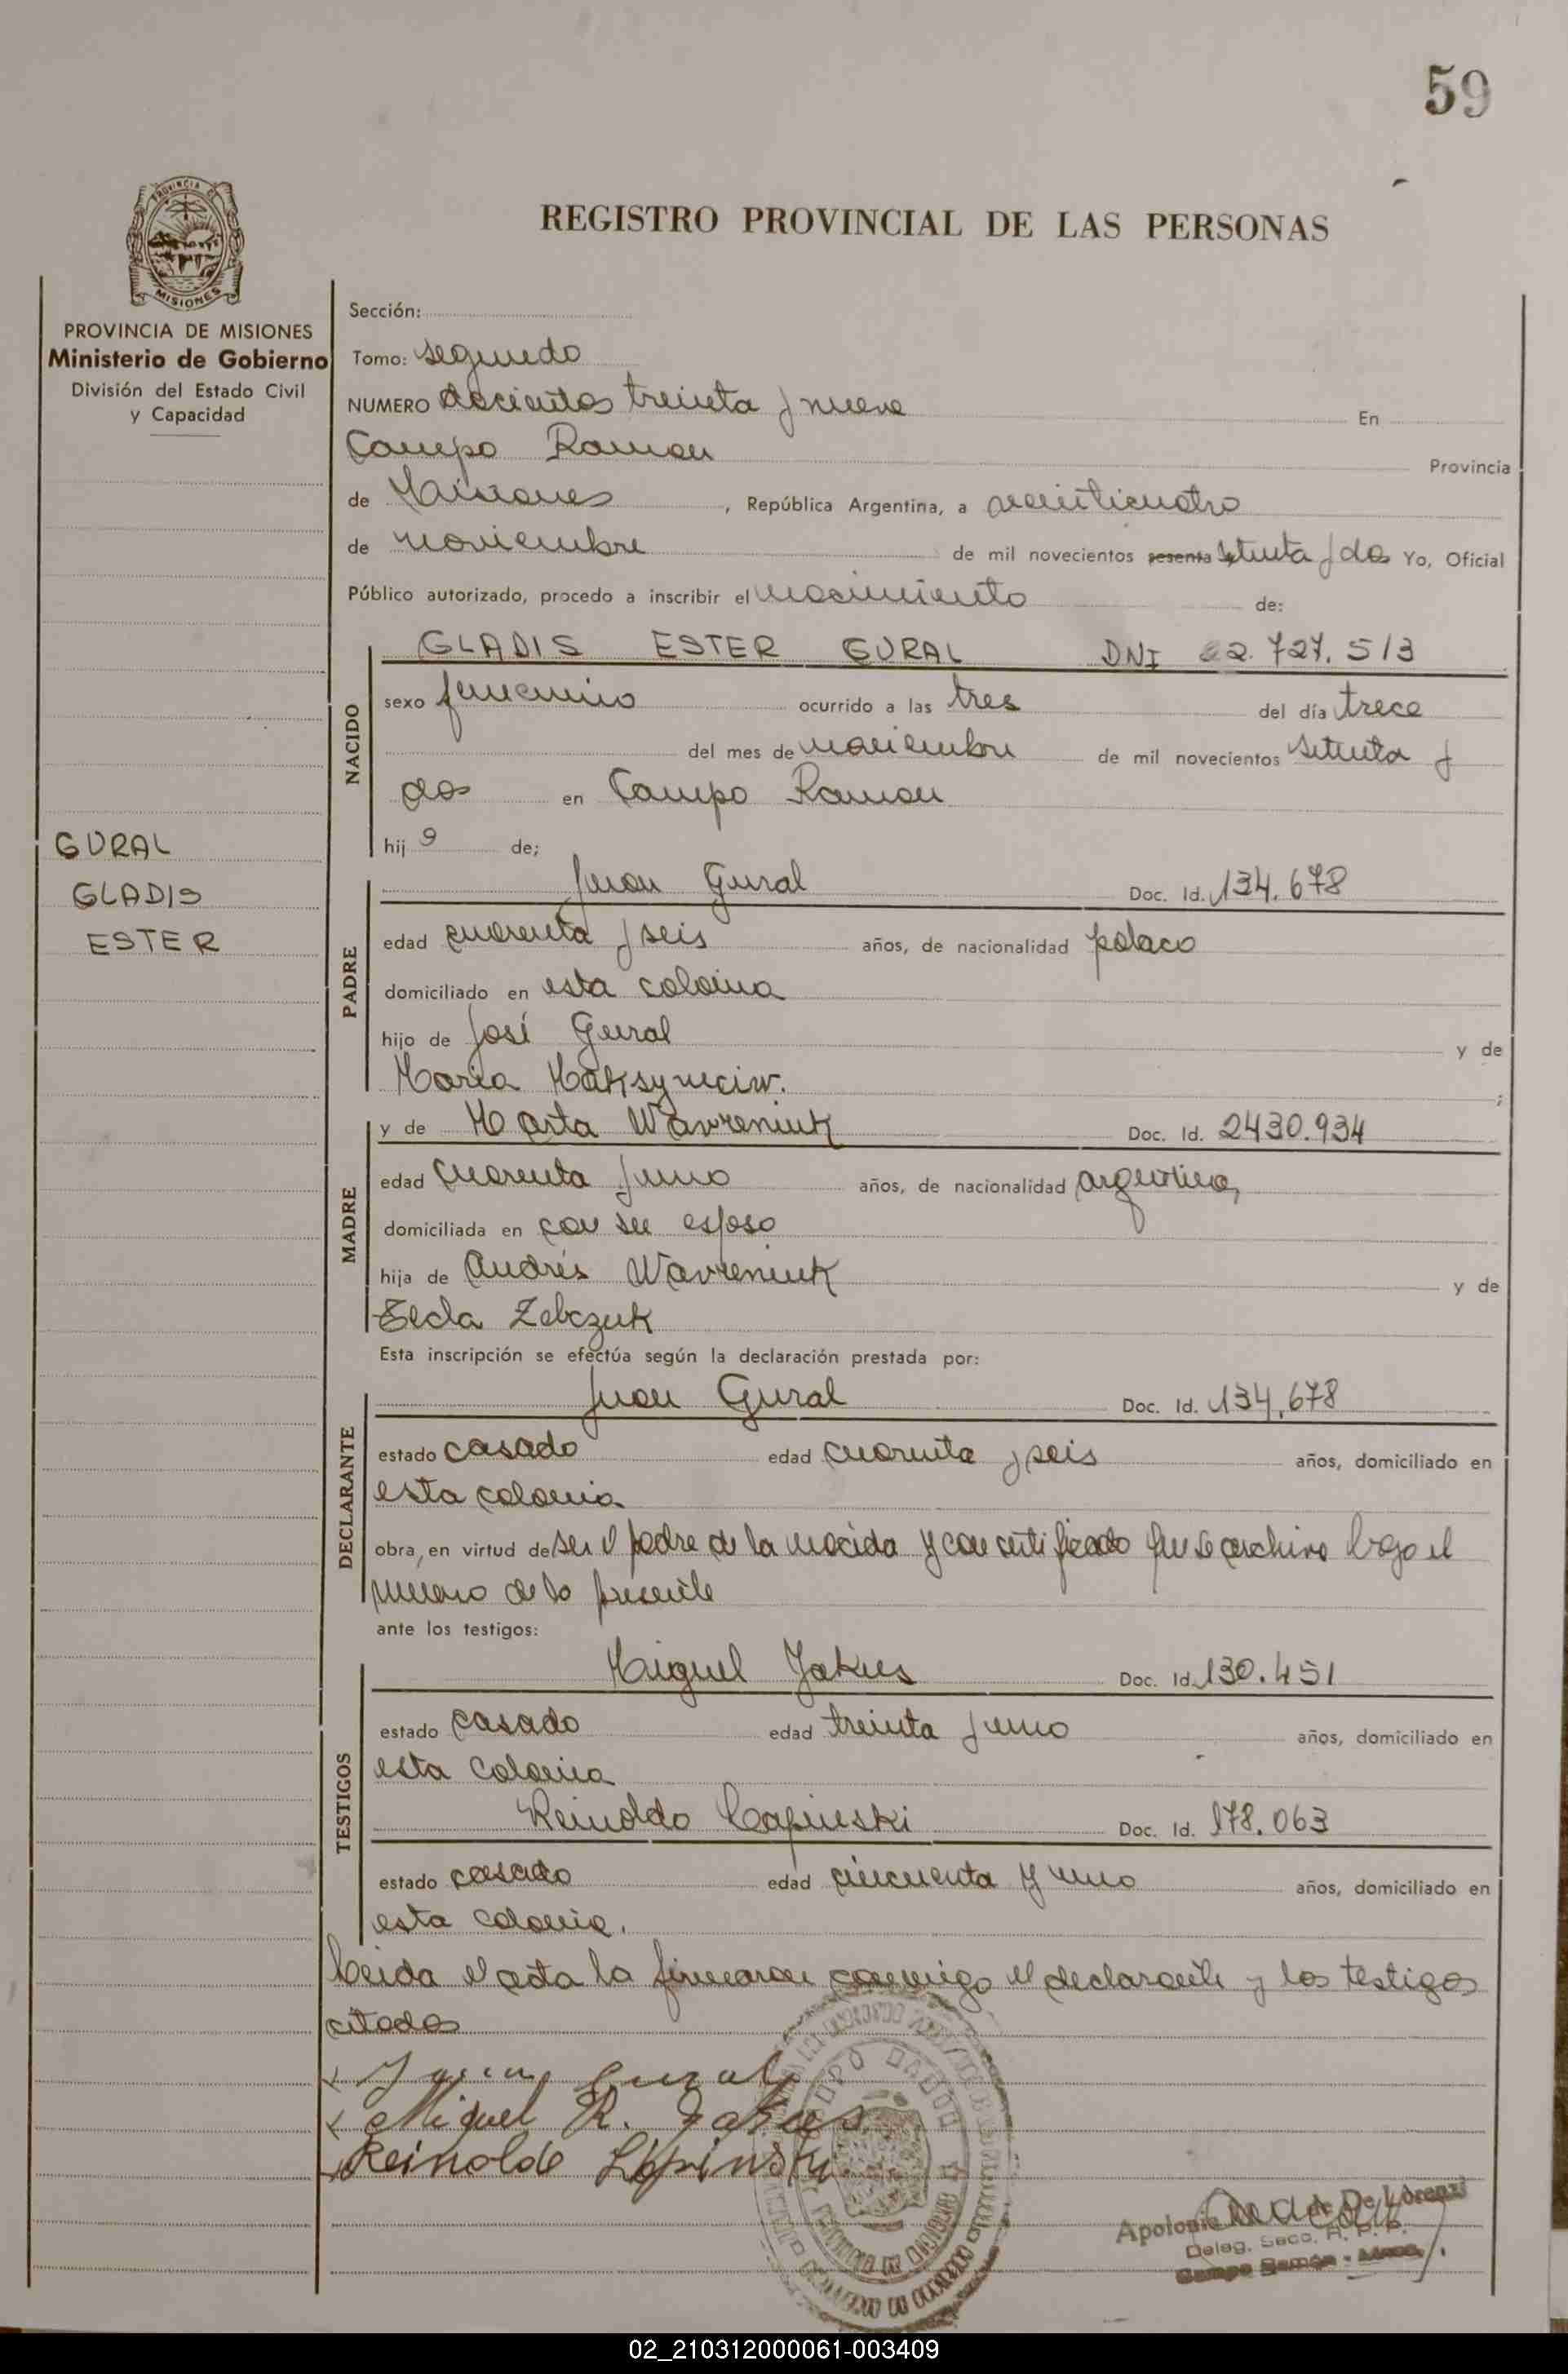 59
PROVINCIA DE
MISIONES
REGISTRO PROVINCIAL DE LAS PERSONAS
PROVINCIA DE MISIONES
Ministerio de Gobierno
División del Estado Civil
y Capacidad
GURAL
GLADIS
ESTER
Sección:
Tomo: segundo
NUMERO doscientos treinta y nueve En
Campo Ramon Provincia
de Misiones, República Argentina, a veinticuatro
de noviembre de mil novecientos sesenta setenta y dos Yo, Oficial
Público autorizado, procedo a inscribir el nacimiento de:
NACIDO
GLADIS ESTER GURAL DNI 22.727.513
sexo femenino ocurrido a las tres del día trece
del mes de noviembre de mil novecientos setenta y
dos en Campo Ramon
hij a de;
PADRE
Juan Gural Doc. Id. 134.678
edad cuarenta y seis años, de nacionalidad polaco
domiciliado en esta colonia
hijo de José Gural y de
Maria Maksymciw. ;
MADRE
y de Marta Wavreniuk Doc. Id. 2430.934
edad cuarenta y uno años, de nacionalidad argentina,
domiciliada en con su esposo
hija de Andrés Wavreniuk y de
Tecla Zebczuk
Esta inscripción se efectúa según la declaración prestada por:
DECLARANTE
Juan Gural Doc. Id. 134,678
estado casado edad cuarenta y seis años, domiciliado en
esta colonia
obra, en virtud de ser el padre de la nacida y con certificado que se archiva bajo el
número de la presente
ante los testigos:
TESTIGOS
Miguel Jakus Doc. Id. 130.451
estado casado edad treinta y uno años, domiciliado en
esta colonia
Reinoldo Lapinski Doc. Id. 178.063
estado casado edad cincuenta y uno años, domiciliado en
esta colonia.
Leida el acta la firmaron conmigo el declarante y los testigos
citados
x Juan Gural
x Miguel R. Jakus
x Reinoldo Lapinski
Apolonia de De Lorenzi
Deleg. Secc. R. P. P.
Campo Ramón - Mnes.
02_210312000061-003409